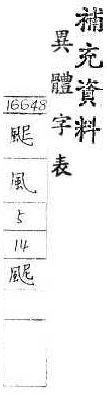 補充資料
異體字表
16648
風
5
14